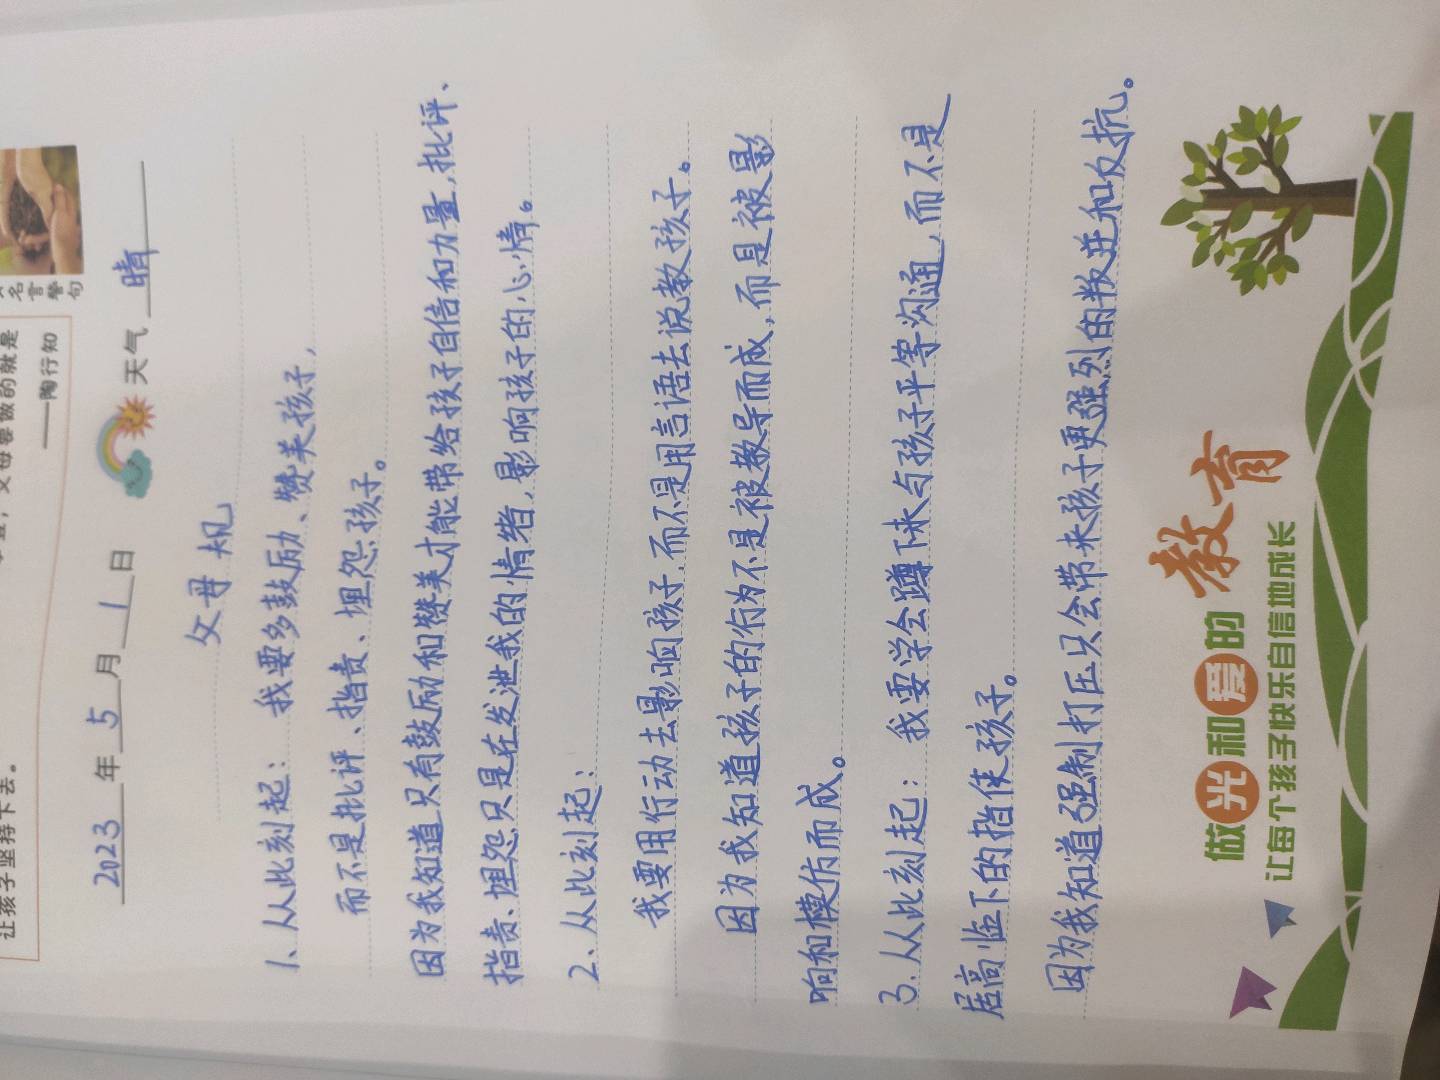 让孩子坚持下去。
父母要做的就是
——陶行知
名言警句
2023年5月1日 天气 晴
父母规
1、从此刻起：我要多鼓励、赞美孩子，
而不是批评、指责、埋怨孩子。
因为我知道只有鼓励和赞美才能带给孩子自信和力量，批评、
指责、埋怨只是在发泄我的情绪，影响孩子的心情。
2、从此刻起：
我要用行动去影响孩子，而不是用言语去说教孩子。
因为我知道孩子的行为不是被教导而成，而是被影
响和模仿而成。
3.从此刻起：我要学会蹲下来与孩子平等沟通，而不是
居高临下的指使孩子。
因为我知道强制打压只会带来孩子更强烈的叛逆和反抗。
做光和爱的教育
让每个孩子快乐自信地成长